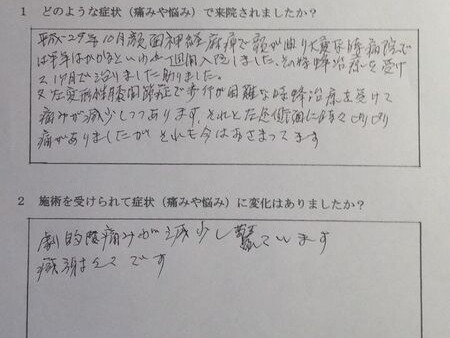 1 どのような症状（痛みや悩み）で来院されましたか？
平成29年10月顔面神経麻痺で顔が曲り大変な時病院で
は半年はかかるといわれ1週間入院しました、その時蜂治療を受け
1ヶ月で治りました助りました。
又左変形性膝関節症で歩行が困難な時蜂治療を受けて
痛みが減少しつつあります、それと左
痛がありましたがそれも今はおさまってます
2 施術を受けられて症状（痛みや悩み）に変化はありましたか？
劇的 痛みが減少し驚ています
感謝 です